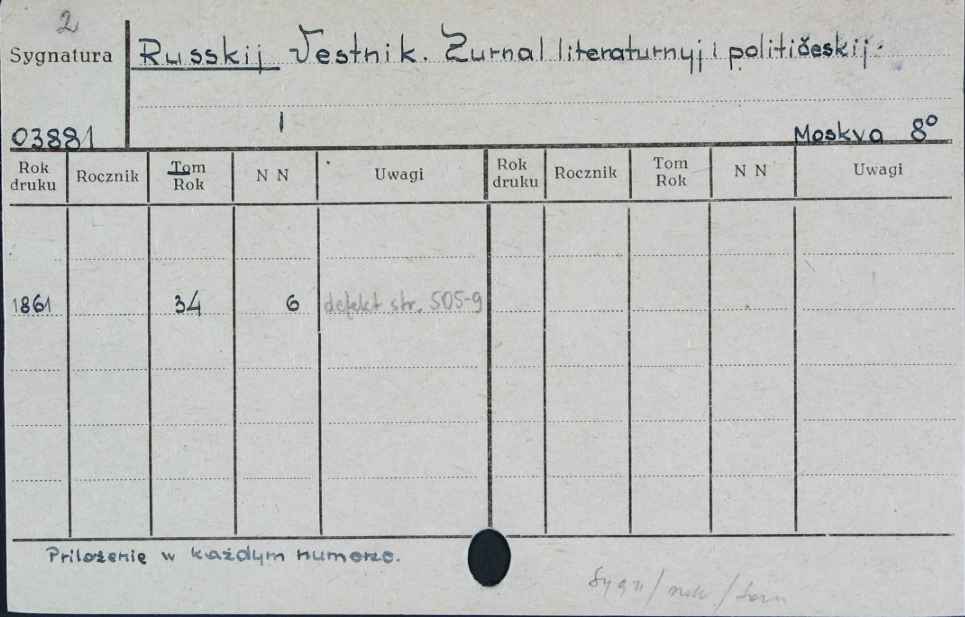 2
Sygnatura
Russkij Vestnik. Žurnal literaturnyj i političeskij.
1
03881
Moskva 8°
Rok druku Rocznik Tom Rok N N Uwagi Rok druku Rocznik Tom Rok N N Uwagi
1861 34 6 defekt str. 505-9
Priloženie w każdym numerze.
Sygn/rok/